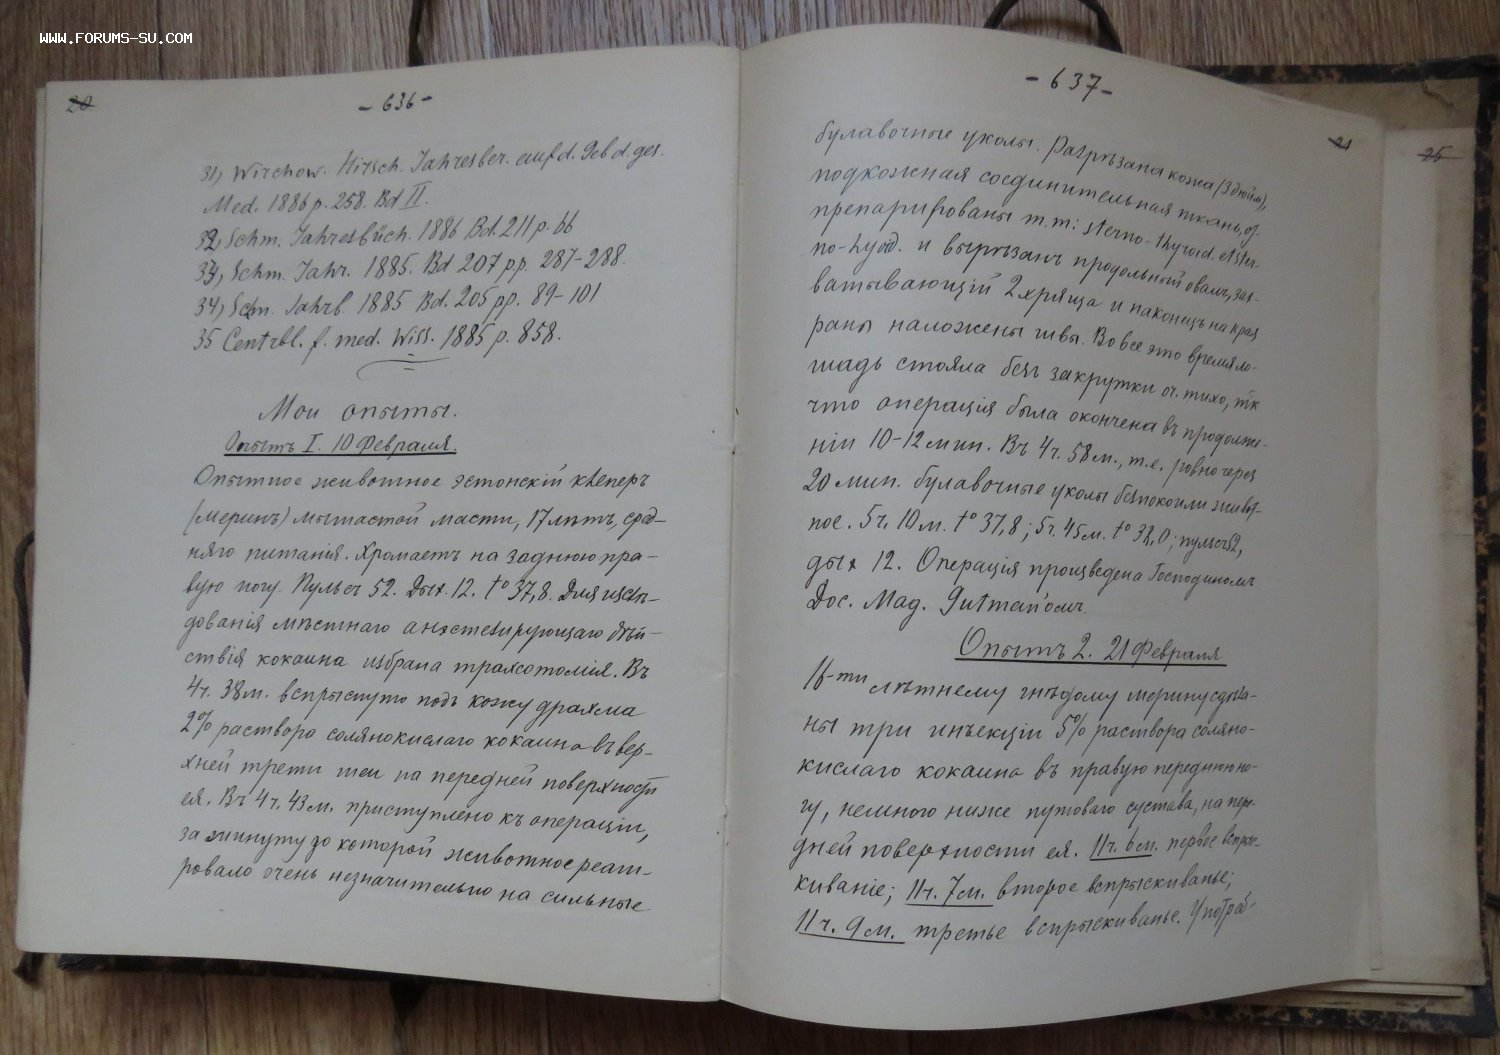 WWW.FORUMS-SU.COM
20
- 636 -
31, Wirchow. Hirsch. Jahresber. auf d. Geb d. ges.
Med. 1886 p. 258. Bd II.
32, Schm. Jahresbüch. 1886 Bd. 211 p. 66
33, Schm. Jahr. 1885. Bd 207 p.p. 287-288.
34, Schm. Jahrb. 1885 Bd. 205 pp. 89-101
35 Centrbl. f. med. Wiss. 1885 p. 858.
Мои опыты.
Опытъ I. 10 Февраля.
Опытное животное эстонскій клеперъ
(меринъ) мышастой масти, 17 лѣтъ, сред-
няго питанія. Хромаетъ на заднюю пра-
вую ногу. Пульсъ 52. Дых. 12. t° 37,8. Для изслѣ-
дованія мѣстнаго анэстезирующаго дѣй-
ствія кокаина избрана трахеотомія. Въ
4 ч. 38 м. вспрыснуто подъ кожу драхма
2% раствора солянокислаго кокаина въ вер-
хней трети шеи на передней поверхности
ея. Въ 4 ч. 43 м. приступлено къ операціи,
за минуту до которой животное реаги-
ровало очень незначительно на сильные
- 637 -
21
25
булавочные уколы. Разрѣзана кожа (3 дюйм),
подкожная соединительная ткань, от
препарированы m.m: sterno-thyroid. et ster-
no-hyoid. и вырѣзанъ продольный овалъ, зах-
ватывающій 2 хряща и наконецъ на края
раны наложены швы. Во все это время ло-
шадь стояла безъ закрутки оч. тихо, тк
что операція была окончена въ продолже-
ніи 10-12 мин. Въ 4 ч. 58 м., т.е. ровно черезъ
20 мин. булавочные уколы безпокоили живот-
ное. 5 ч. 10 м. t° 37,8; 5 ч. 45 м. t° 38,0; пульсъ 52,
дых 12. Операція произведена Господиномъ
Doc. Mag. Gutman'омъ.
Опытъ 2. 21 Февраля
16-ти лѣтнему гнѣдому мерину сдѣла-
ны три инъекціи 5% раствора соляно-
кислаго кокаина въ правую переднюю но-
гу, немного ниже путоваго сустава, на пере-
дней поверхности ея. 11 ч. 6 м. первое вспрыс-
киваніе; 11 ч. 7 м. второе вспрыскиванье;
11 ч. 9 м. третье вспрыскиванье. Употреб-